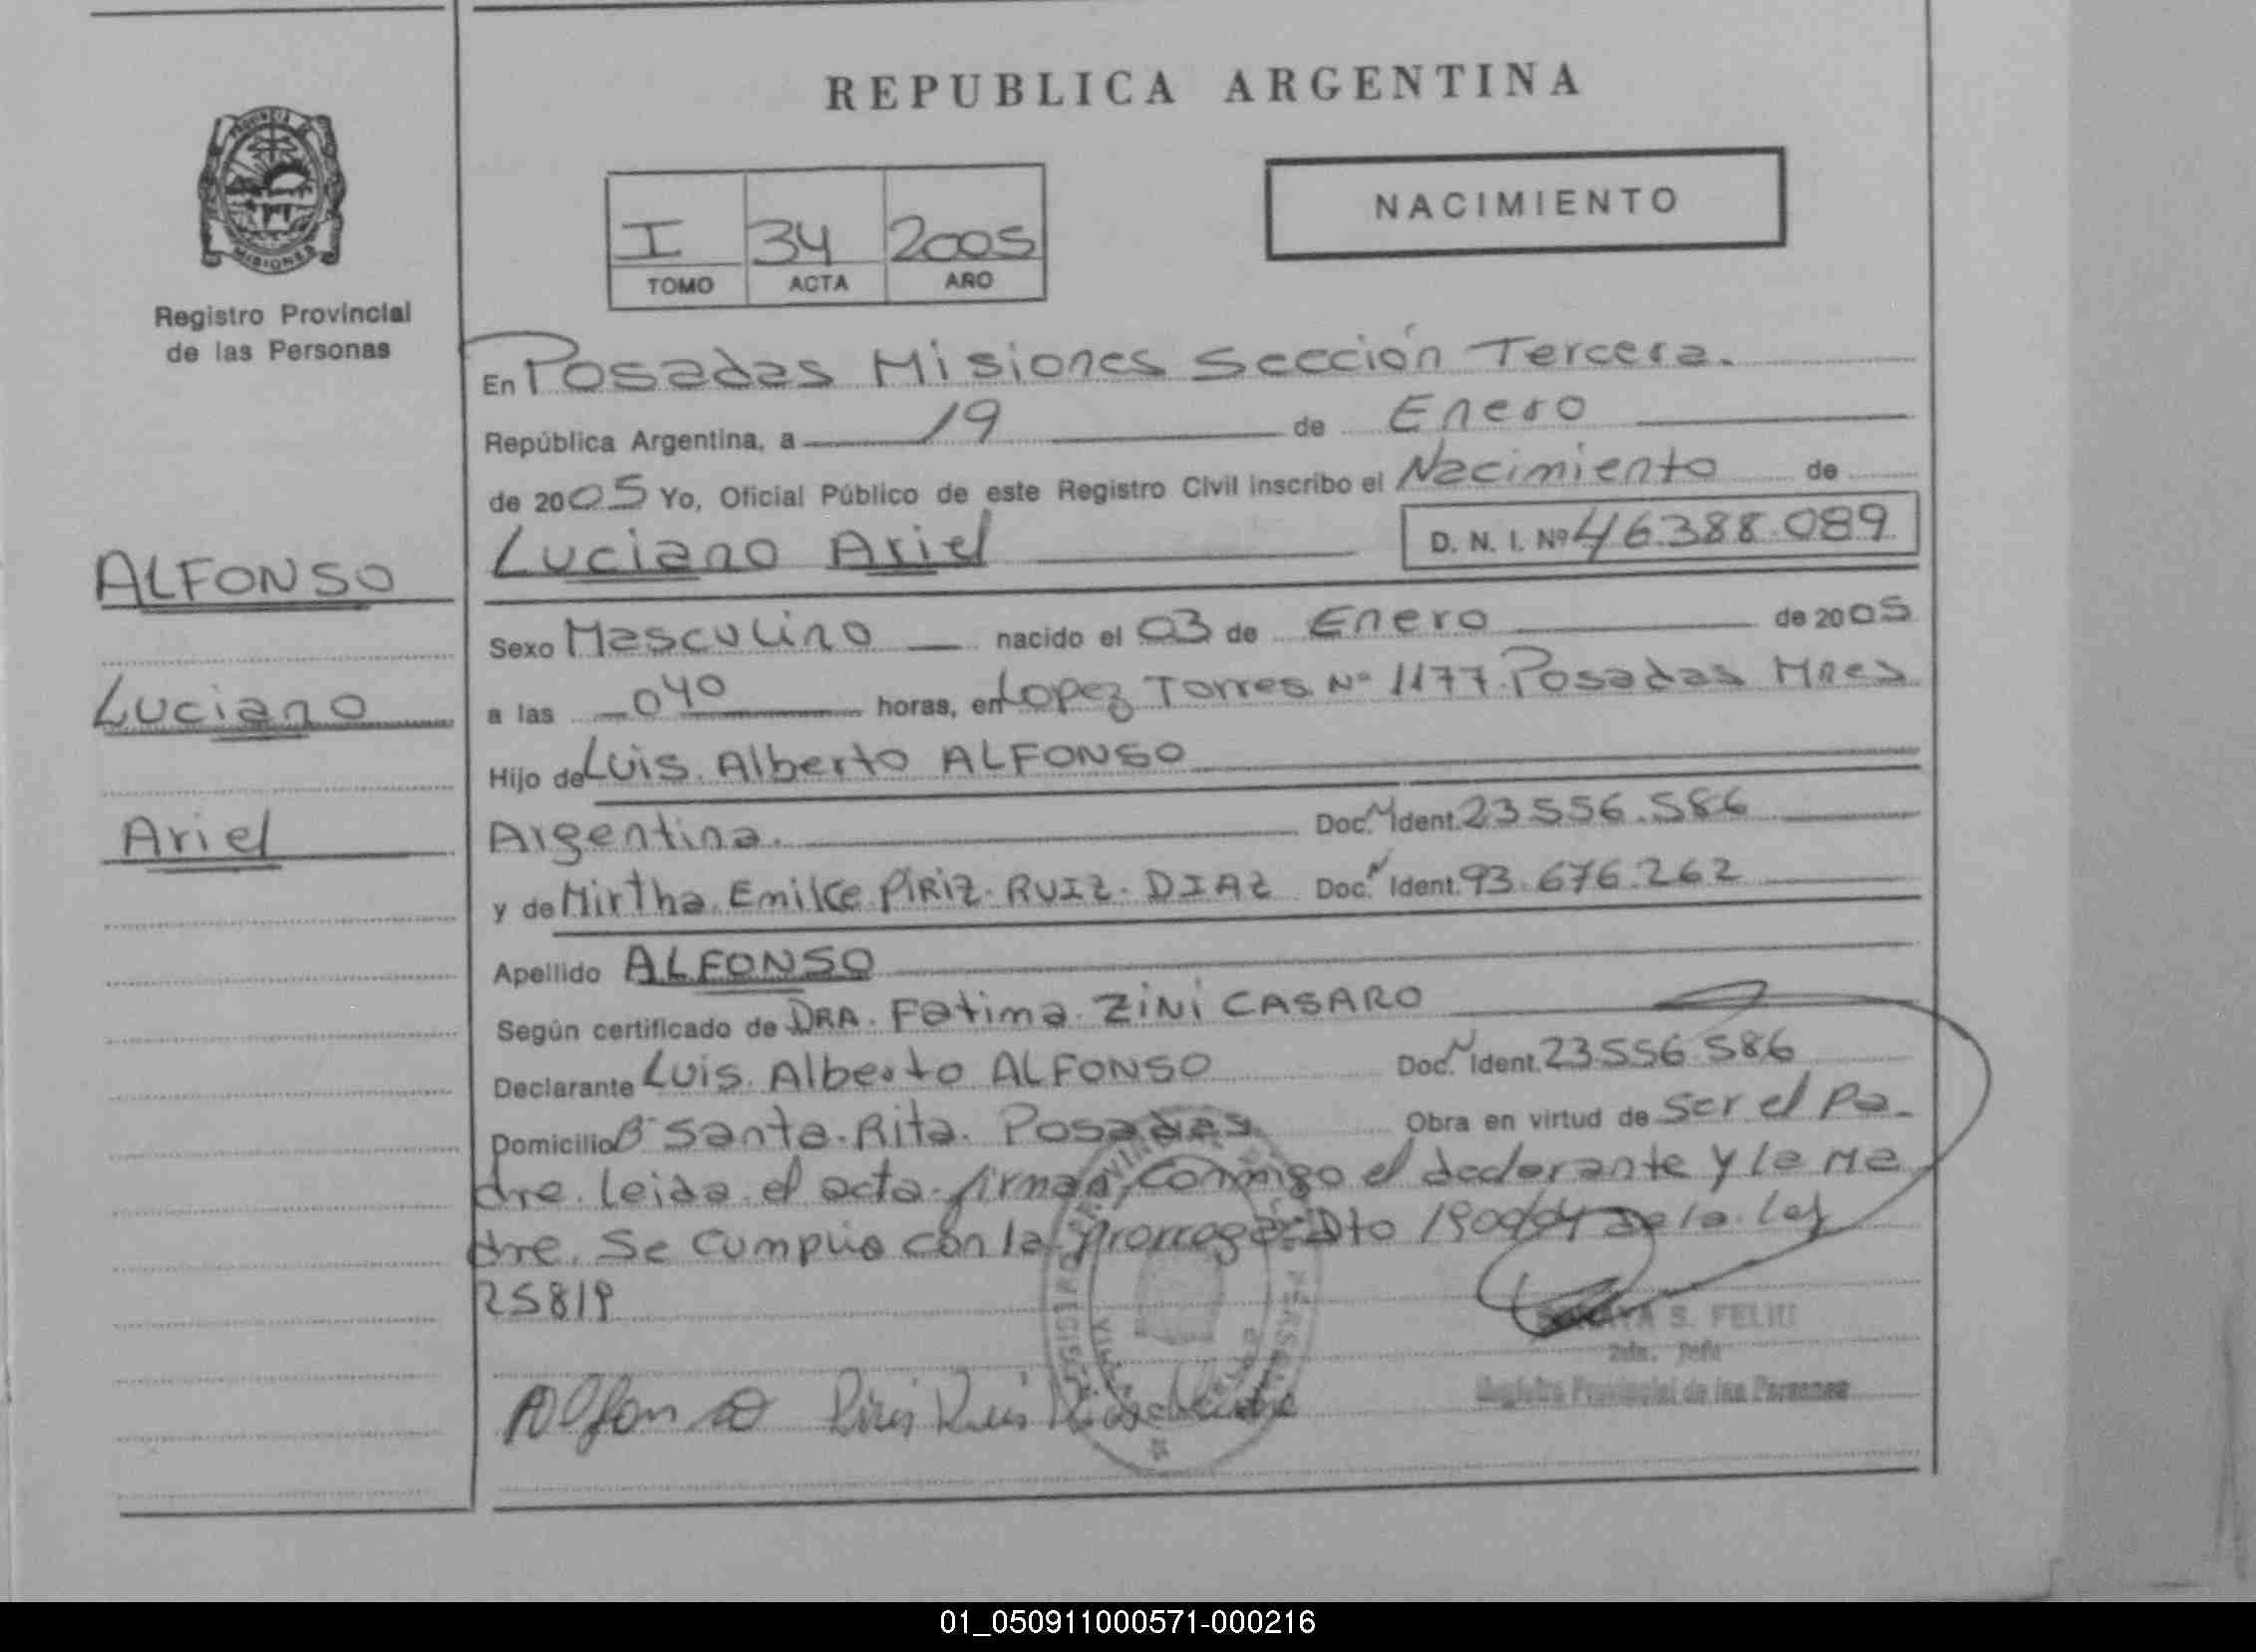 REPUBLICA ARGENTINA
PROVINCIA DE
MISIONES
Registro Provincial
de las Personas
I 34 2005
TOMO ACTA AÑO
NACIMIENTO
En Posadas Misiones Sección Tercera.
República Argentina, a 19 de Enero
de 2005 Yo, Oficial Público de este Registro Civil inscribo el Nacimiento de
Luciano Ariel D. N. I. Nº 46.388.089
ALFONSO
Sexo Masculino nacido el 03 de Enero de 2005
Luciano
a las 040 horas, en Lopez Torres Nº 1177. Posadas Mnes
Hijo de Luis Alberto ALFONSO
Ariel
Argentina. Doc. Ident. 23.556.586
y de Mirtha Emilce PIRIZ RUIZ DIAZ Doc. Ident. 93.676.262
Apellido ALFONSO
Según certificado de DRA. Fatima ZINI CASARO
Declarante Luis Alberto ALFONSO Doc. Ident. 23.556.586
Domicilio Bº Santa Rita. Posadas Obra en virtud de ser el Pa-
dre. leida el acta firman conmigo el declarante y la Ma
dre. Se cumplio con la prorroga Dto de la Ley
25819
S. FELIU
Registro Provincial de las Personas
Alfonso Piris Ruis
01_050911000571-000216